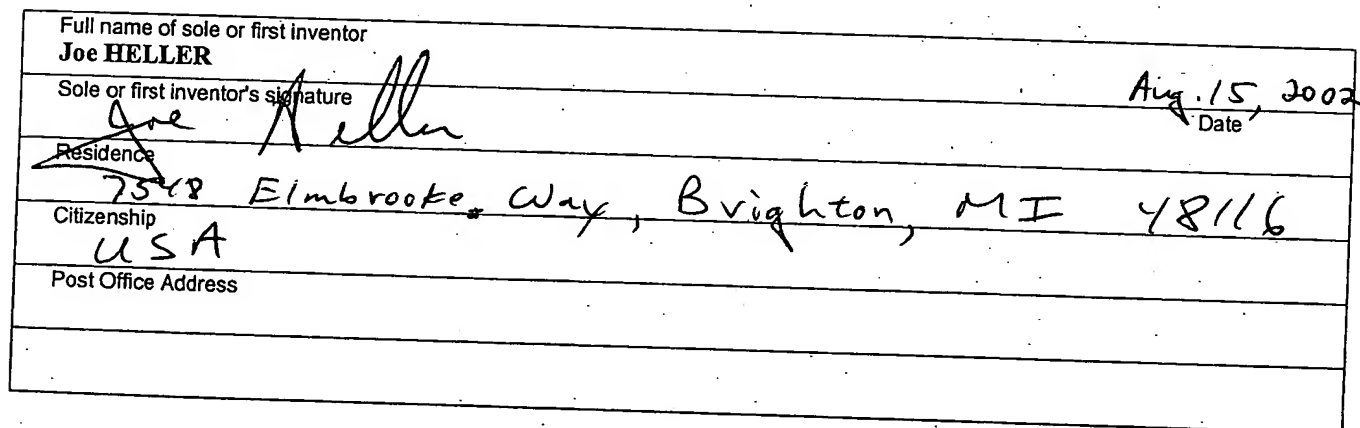 Full name of sole or first inventor
Joe HELLER
Sole or first inventor's signature
Joe Heller
Aug. 15, 2002
Date
Residence
7548 Elmbrooke Way, Brighton, MI 48116
Citizenship
USA
Post Office Address